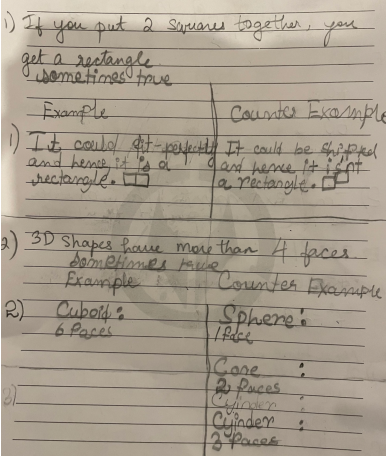 1) If you put 2 squares together, you
get a rectangle
sometimes true
Example
Counter Example
1) It could fit perfectly
and hence it is a
rectangle.
It could be shifted
and hence it isn't
a rectangle.
2) 3D shapes have more than 4 faces.
sometimes true
Example
Counter Example
2) Cuboid:
6 faces
Sphere:
1 face
Cone :
2 faces
Cylinder :
Cylinder :
3 faces
3)